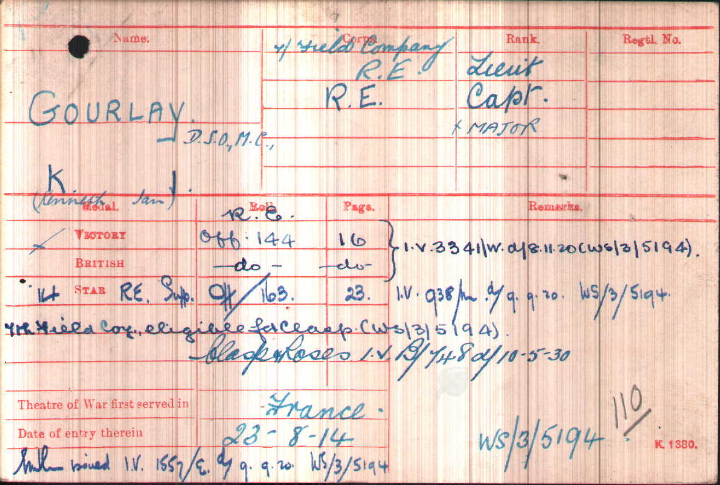 Name. Corps. Rank. Regtl. No.
7/ Field Company R.E. Lieut
GOURLAY. R.E. Capt.
D.S.O., M.C., + MAJOR
K I.
(Kenneth Ian)
Medal. Roll. Page. Remarks.
R.E.
VICTORY Off. 144 16 I.V. 3341/W. d/8.11.20 (WS/3/5194).
BRITISH -do- -do-
14 STAR R.E. Supp. Off/163. 23. I.V. 938/m d/9.9.20. WS/3/5194
7th Field Coy., eligible for Clasp (WS/3/5194).
Clasp & Roses I.V. B/748 d/10-5-30
Theatre of War first served in France.
Date of entry therein 23-8-14 WS/3/5194 110
K 1380.
issued I.V. 1557/E. d/ 9.9.20. WS/3/5194